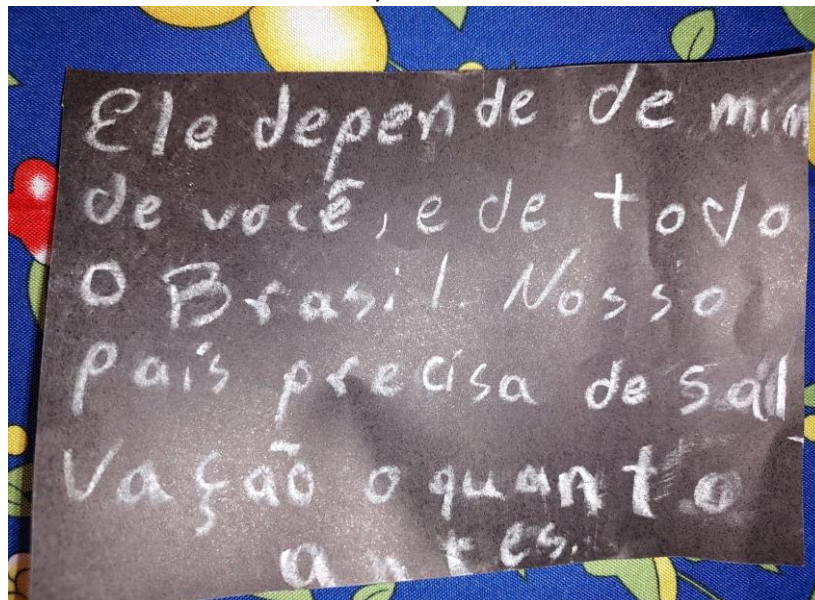 Ele depende de mim
de você, e de todo
o Brasil. Nosso
país precisa de sal
vação o quanto
antes.